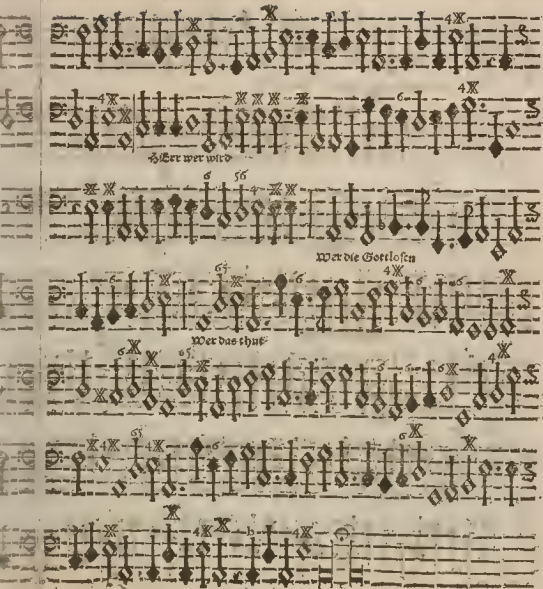 HErr wer wird
Wer die Gottlosen
Wer das thut